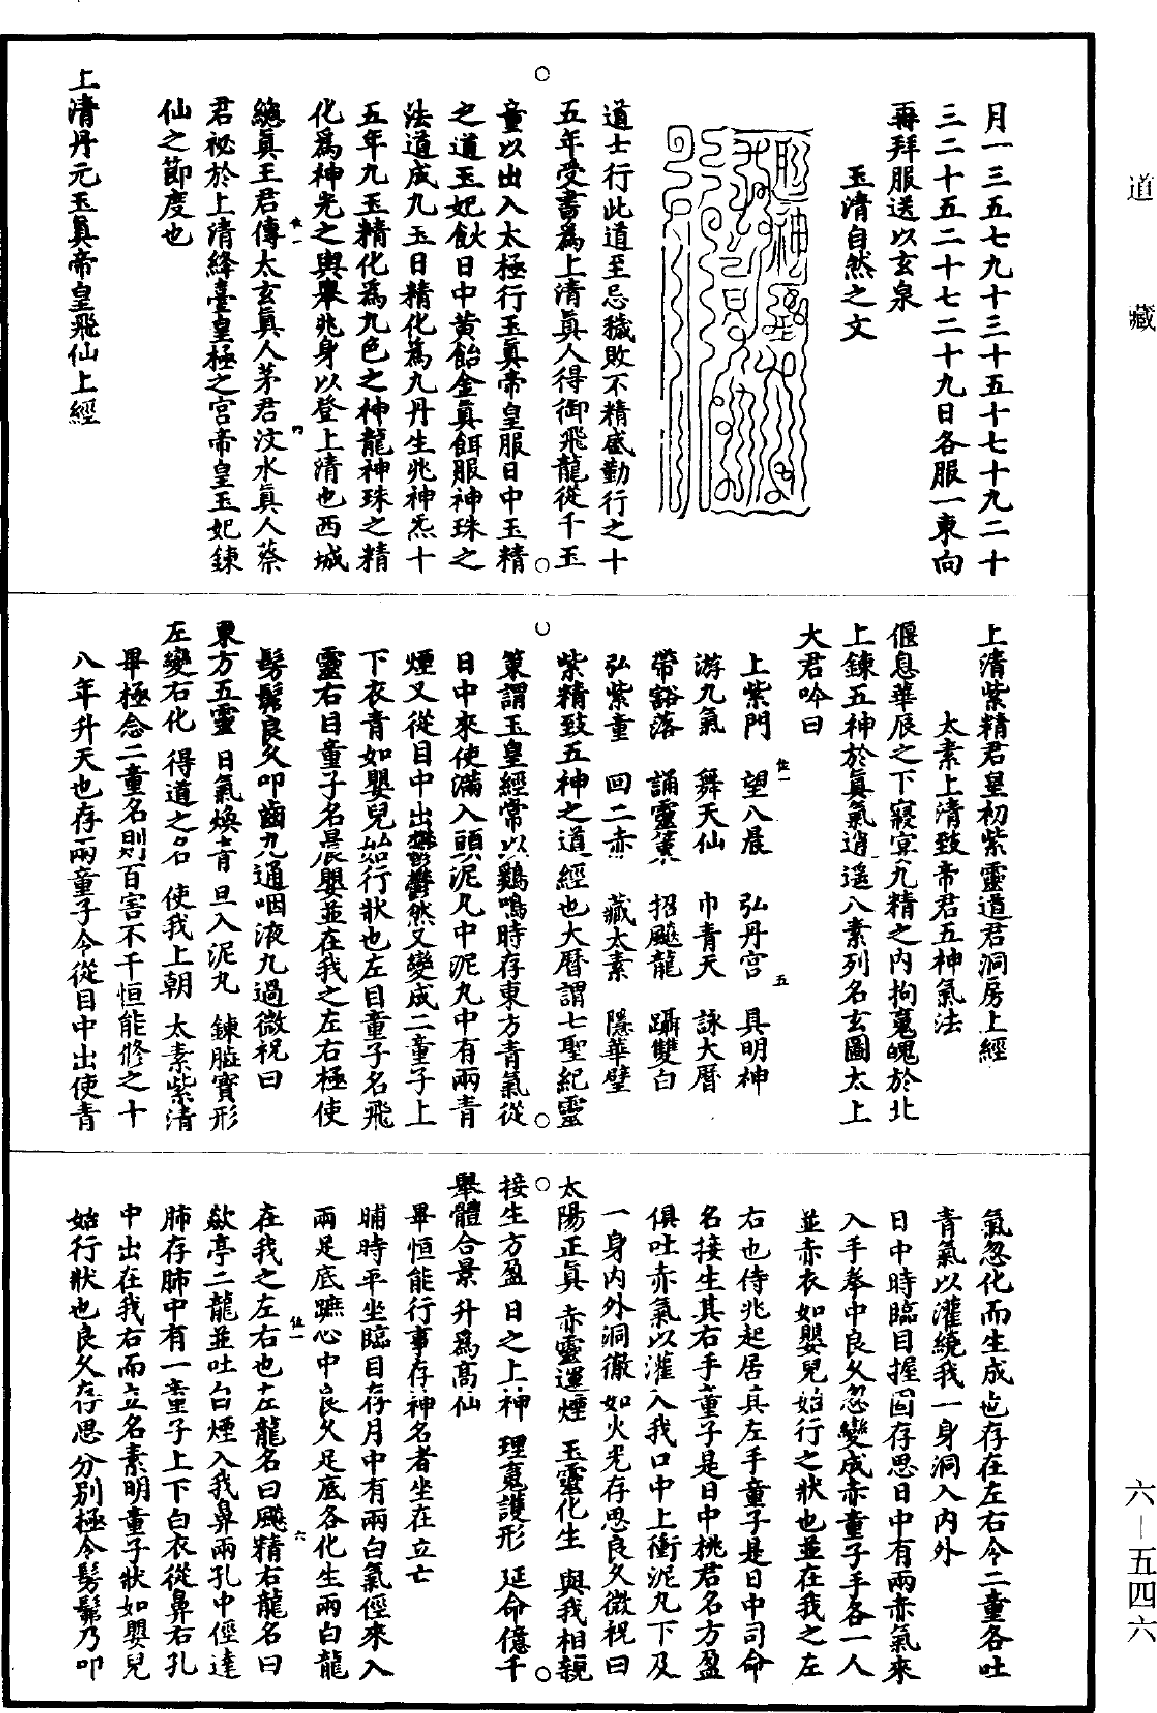 道藏
月一三五七九十三十五十七十九二十
三二十五二十七二十九日各服一東向
再拜服送以玄泉
玉清自然之文
道士行此道至忌穢敗不精感勤行之十
五年受書為上清真人得御飛龍從千玉
童以出入太極行玉真帝皇服日中玉精
之道玉妃飲日中黃飴金真餌服神珠之
法道成九玉日精化為九丹生兆神炁十
五年九玉精化為九色之神龍神珠之精
化為神光之輿舉兆身以登上清也西城
總真王君傳太玄真人茅君汶水真人蔡
君祕於上清絳臺皇極之宮帝皇玉妃鍊
仙之節度也
上清丹元玉真帝皇飛仙上經
上清紫精君皇初紫靈道君洞房上經
太素上清致帝君五神氣法
偃息華辰之下寢宴九精之內拘䰟魄於北
上鍊五神於真氣逍遙八素列名玄圖太上
大君吟曰
上紫門 望八晨 弘丹宮 具明神
游九氣 舞天仙 巾青天 詠大曆
帶豁落 誦靈篇 招飈龍 躡雙白
弘紫童 回二赤 藏太素 隱華璧
紫精致五神之道經也大曆謂七聖紀靈
策謂玉皇經常以鷄鳴時存東方青氣從
日中來使滿入頭泥丸中泥丸中有兩青
煙又從目中出鬱鬱然又變成二童子上
下衣青如嬰兒始行狀也左目童子名飛
靈右目童子名晨嬰並在我之左右極使
髣髴良久叩齒九通咽液九過微祝曰
東方五靈 日氣煥青 旦入泥丸 鍊臨寶形
左變右化 得道之名 使我上朝 太素紫清
畢極念二童名則百害不干恒能修之十
八年升天也存兩童子令從目中出使青
氣忽化而生成也存在左右令二童各吐
青氣以灌繞我一身洞入內外
日中時臨目握固存思日中有兩赤氣來
入手拳中良久忽變成赤童子手各一人
並赤衣如嬰兒始行之狀也並在我之左
右也侍兆起居具左手童子是日中司命
名接生其右手童子是日中桃君名方盈
俱吐赤氣以灌入我口中上衝泥丸下及
一身內外洞徹如火光存思良久微祝曰
太陽正真 赤靈運煙 玉靈化生 與我相親
接生方盈 日之上神 理䰟護形 延命億千
舉體合景 升為高仙
畢恒能行事存神名者坐在立亡
晡時平坐臨目存月中有兩白氣徑來入
兩足底蹠心中良久足底各化生兩白龍
在我之左右也左龍名曰飈精右龍名曰
歘亭二龍並吐白煙入我鼻兩孔中徑達
肺存肺中有一童子上下白衣從鼻右孔
中出在我右而立名素明童子狀如嬰兒
始行狀也良久存思分別極令髣髴乃叩
六—五四六